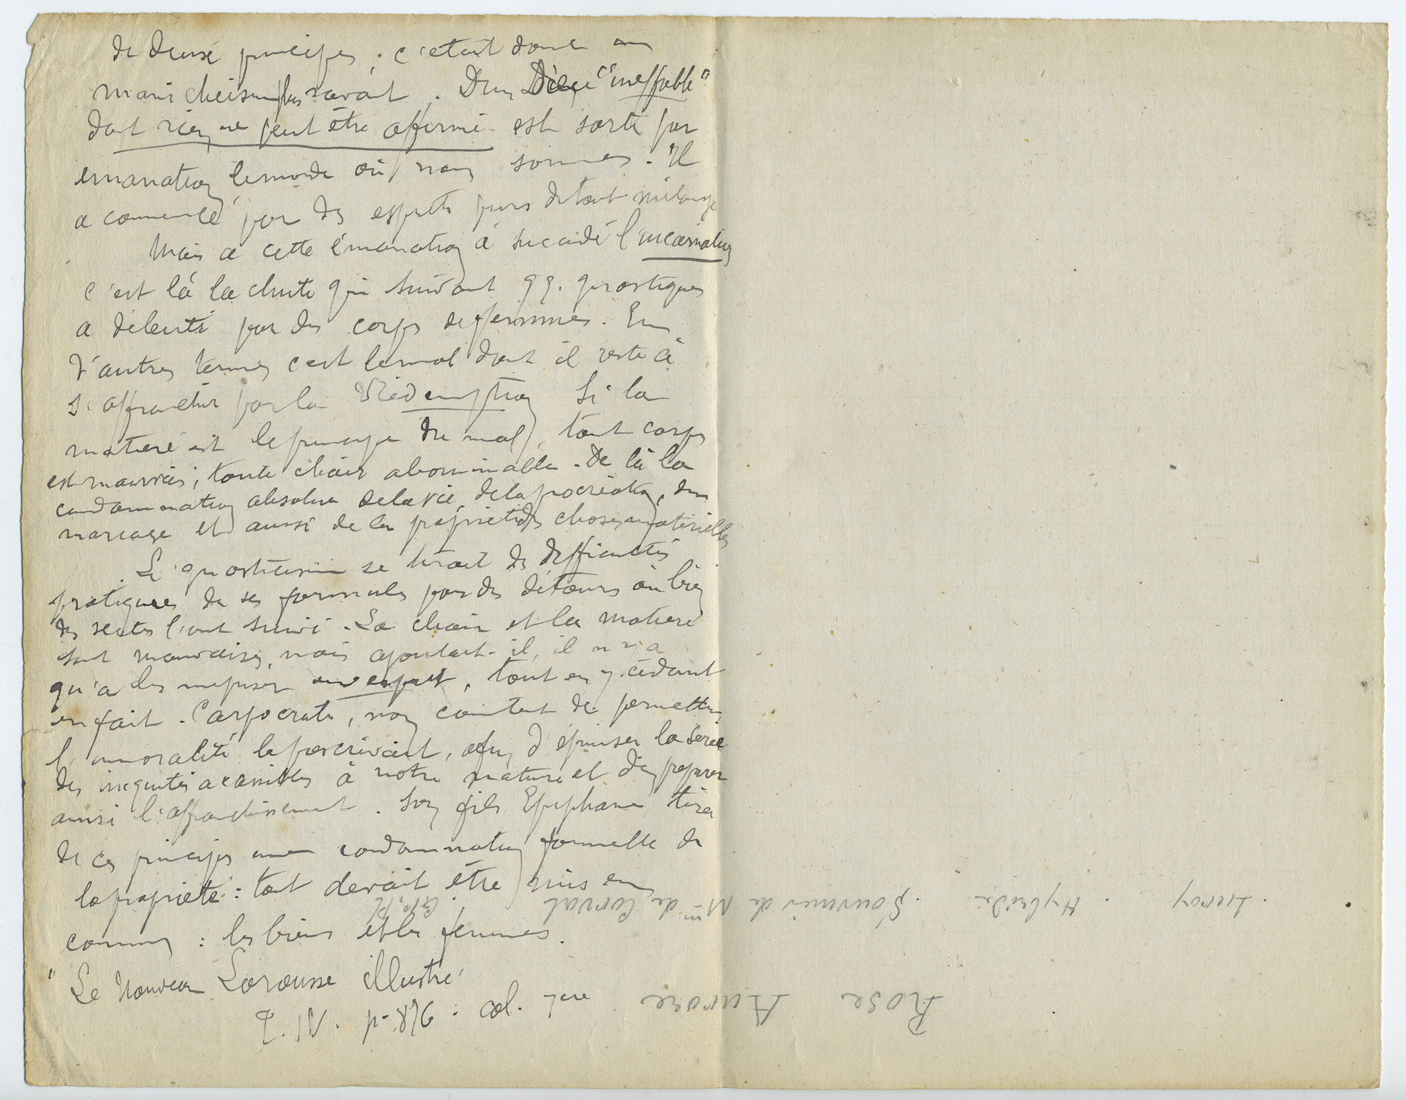 de deux principes. c'était donc un
manichéisme plus savant. D'un Dieu "ineffable"
dont rien ne peut être affirmé est sorti par
émanation le monde où nous sommes. Il
a commencé par des esprits purs de tout mélange
Mais à cette émanation a succédé l'incarnation
c'est là la chute qui suivant qq. gnostiques
a débuté par des corps de femmes. En
d'autres termes c'est le mal dont il reste à
s'affranchir par la Rédemption Si la
matière est le principe du mal, tout corps
est mauvais, toute chair abominable. De là la
condamnation absolue de la vie, de la procréation, du
mariage et aussi de la propriété des choses matérielles
Le gnosticisme se tirait des difficultés
pratiques de ses formules par des détours où bien
des sectes l'ont suivi. La chair et la matière
sont mauvaises, mais ajoutait-il, il n'y a
qu'à les mépriser en esprit, tout en y cédant
en fait. Carpocrate, non content de permettre
l'immoralité la prescrivait, afin d'épuiser la série
des iniquités accessibles à notre nature et d'en préparer
ainsi l'affranchissement. Son fils Epiphane tira
de ces principes une condamnation formelle de
la propriété : tout devait être mis en
commun : les biens et les femmes.
"Le Nouveau Larousse illustré
T. IV. p. 876. col. 1ère
Rose Aurore
Leroy. Hybride. Souvenir de Mme de Corval